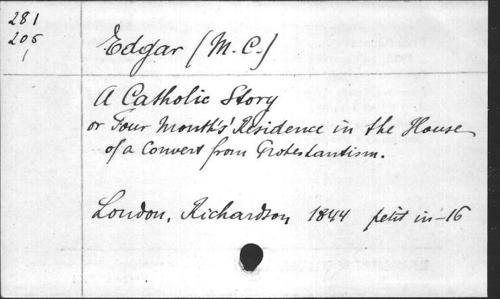 281
205
1
Edgar (M. C.)
A Catholic Story
or Four Month's Residence in the House
of a Convert from Protestantism.
London, Richardson 1844 petit in-16